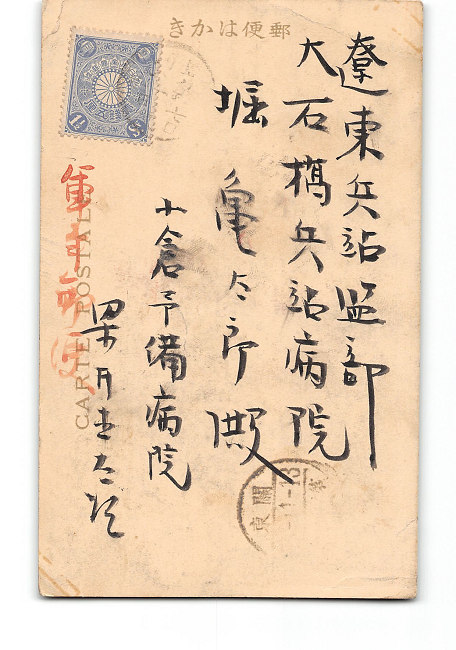 郵便はかき
遼東兵站監部
大石橋兵站病院
堀亀太郎殿
小倉予備病院
軍事郵便
CARTE POSTALE
1½ Sn